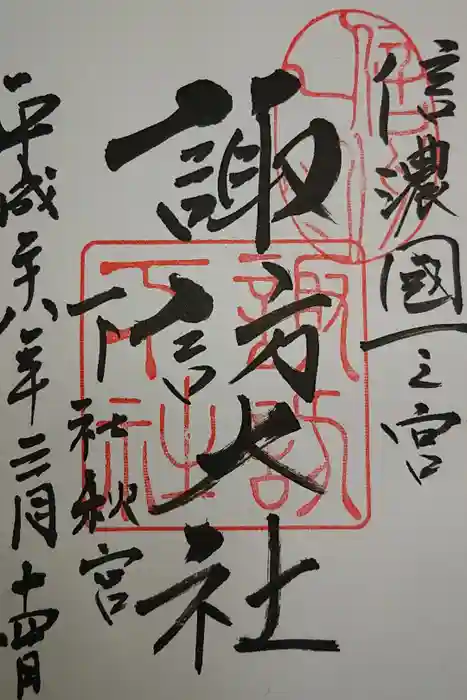 信濃國一之宮
諏訪大社
下社秋宮
平成二十八年三月十四日
諏訪
下社